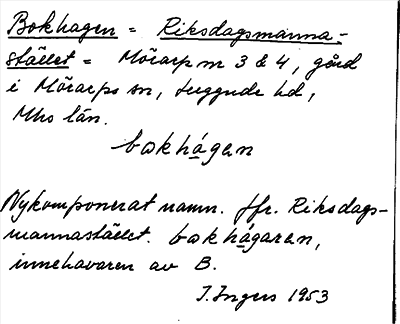 Bokhagen = Riksdagsmanna-
stället = Mörarp nr 3 & 4, gård
i Mörarps sn, Luggude hd,
Mhs län.
bokhágen
Nykomponerat namn. Jfr. Riksdags-
mannastället. bokhágaren,
innehavaren av B.
I. Ingers 1953